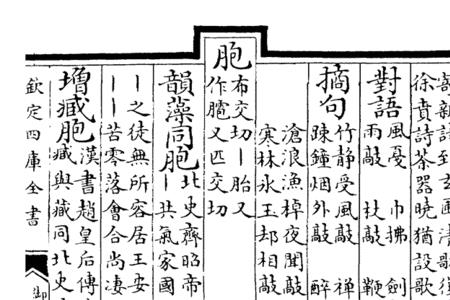 徐賁詩茶器曉猶設歌
對語風戞 巾拂 劍
雨敲 扙敲 鞭
摘句竹静受風敲 禅
疎鐘烟外敲 醉
滄浪漁棹夜聞敲
寒林氷玉却相敲
胞布交切|胎又
作又匹交切
韻藻同胞北史齊昭帝
|共氣家國
|之徒無所容居王安
||苦零落會合尚凄
增臧胞漢書趙皇后傳
臧與藏同北史
欽定四庫全書
御